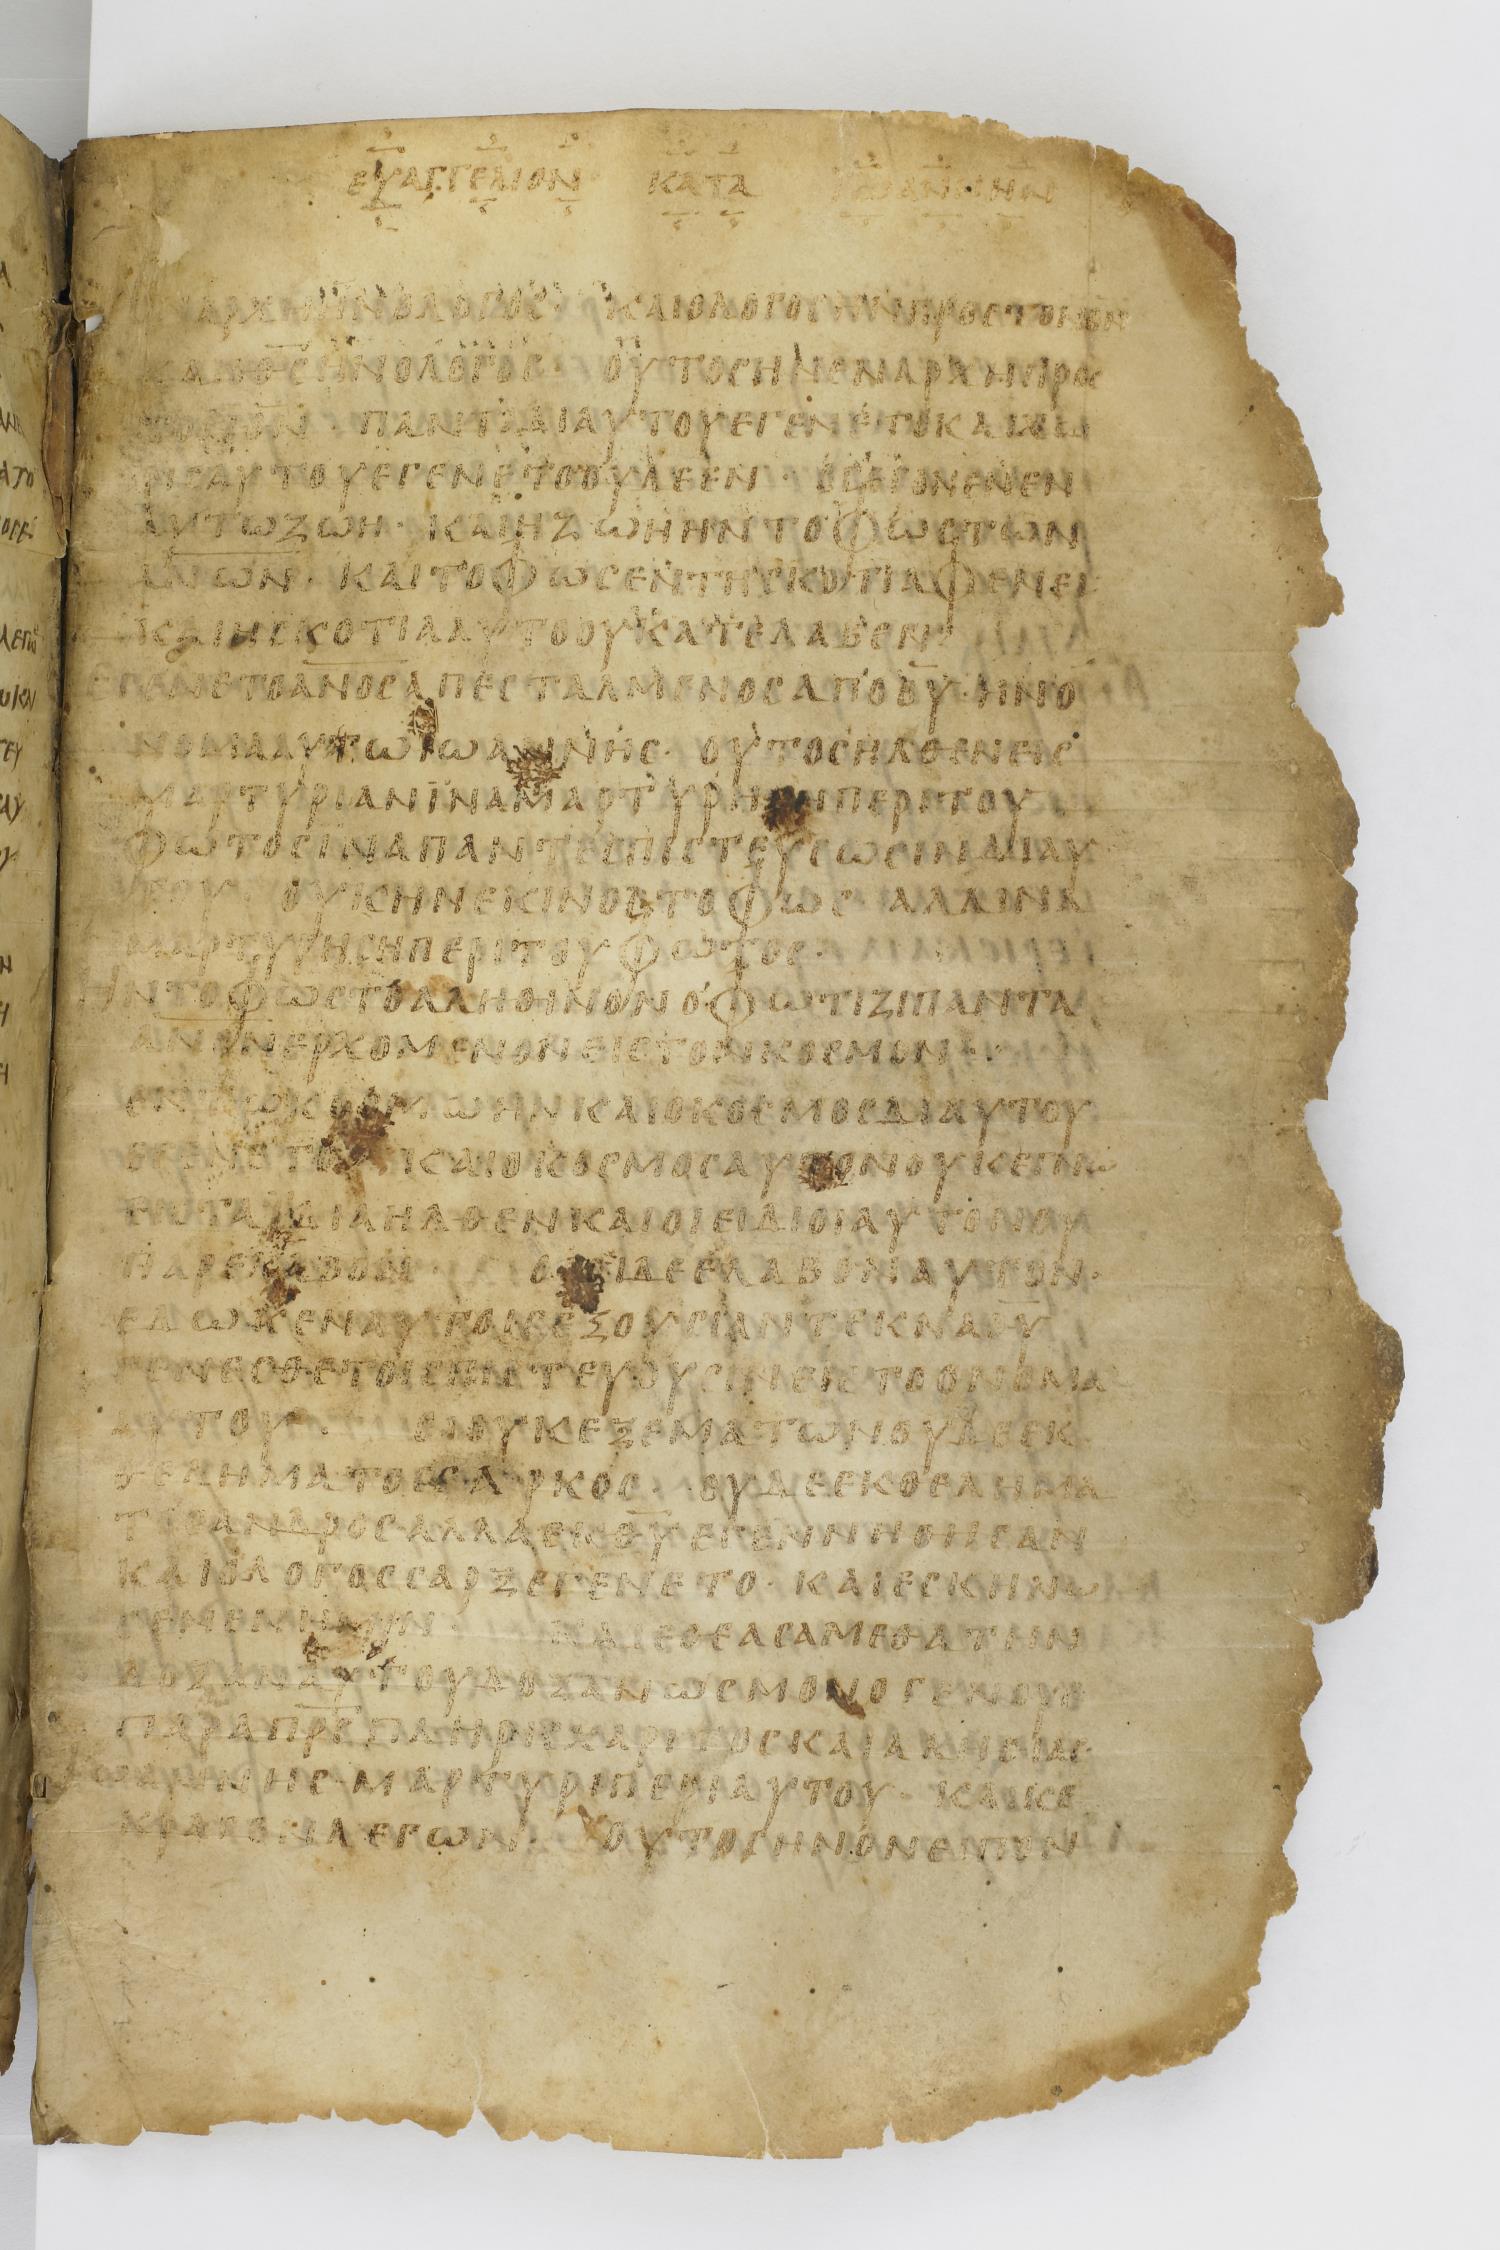 ΕΥΑΓΓΕΛΙΟΝ ΚΑΤΑ ΙΩΑΝΝΗΝ
ΑΡΧΗ ΗΝΟΛΟΓΟC· ΚΑΙΟΛΟΓΟCΗΝΠΡΟCΤΟΝΘΝ
ΚΑΙΘCΗΝΟΛΟΓΟC· ΟΥΤΟCΗΝΕΝΑΡΧΗΠΡΟC
ΤΟΝΘΝ· ΠΑΝΤΑΔΙΑΥΤΟΥΕΓΕΝΕΤΟΚΑΙΧΩ
ΡΙCΑΥΤΟΥΕΓΕΝΕΤΟΟΥΔΕΕΝ· ΟΓΕΓΟΝΕΝΕΝ
ΑΥΤΩΖΩΗ· ΚΑΙΗΖΩΗΗΝΤΟΦΩCΤΩΝ
ΑΝΩΝ· ΚΑΙΤΟΦΩCΕΝΤΗCΚΟΤΙΑΦΕΝΕΙ
ΚΑΙΗCΚΟΤΙΑΑΥΤΟΟΥΚΑΤΕΛΑΒΕΝ
ΕΓΕΝΕΤΟΑΝΟCΑΠΕCΤΑΛΜΕΝΟCΑΠΟΘΥ· ΗΝΟ
ΝΟΜΑΑΥΤΩΙΩΑΝΝΗC· ΟΥΤΟCΗΛΘΕΝΕΙC
ΜΑΡΤΥΡΙΑΝΙΝΑΜΑΡΤΥΡΗCΗΠΕΡΙΤΟΥ
ΦΩΤΟCΙΝΑΠΑΝΤΕCΠΙCΤΕΥCΩCΙΝΔΙΑΥ
ΤΟΥ· ΟΥΚΗΝΕΚΙΝΟCΤΟΦΩC ΑΛΛΙΝΑ
ΜΑΡΤΥΡΗCΗΠΕΡΙΤΟΥΦΩΤΟC·
ΗΝΤΟΦΩCΤΟΑΛΗΘΙΝΟΝΟΦΩΤΙΖΙΠΑΝΤΑ
ΑΝΟΝΕΡΧΟΜΕΝΟΝΕΙCΤΟΝΚΟCΜΟΝ·
ΕΝΤΩΚΟCΜΩΗΝΚΑΙΟΚΟCΜΟCΔΙΑΥΤΟΥ
ΕΓΕΝΕΤΟ· ΚΑΙΟΚΟCΜΟCΑΥΤΟΝΟΥΚΕΓΝΩ
ΕΙCΤΑΙΔΙΑΗΛΘΕΝΚΑΙΟΙΕΙΔΙΟΙΑΥΤΟΝΟΥ
ΠΑΡΕΛΑΒΟΝ· ΟCΟΙΔΕΕΛΑΒΟΝΑΥΤΟΝ·
ΕΔΩΚΕΝΑΥΤΟΙCΕΞΟΥCΙΑΝΤΕΚΝΑΘΥ
ΓΕΝΕCΘΕΤΟΙCΠΙCΤΕΥΟΥCΙΝΕΙCΤΟΟΝΟΜΑ
ΑΥΤΟΥ· ΟΙΟΥΚΕΞΕΜΑΤΩΝΟΥΔΕΕΚ
ΘΕΛΗΜΑΤΟCCΑΡΚΟC· ΟΥΔΕΕΚΘΕΛΗΜΑ
ΤΟCΑΝΔΡΟCΑΛΛΑΕΚΘΥΕΓΕΝΝΗΘΗCΑΝ
ΚΑΙΟΛΟΓΟCCΑΡΞΕΓΕΝΕΤΟ· ΚΑΙΕCΚΗΝΩ
CΕΝΕΝΗΜΙΝ· ΚΑΙΕΘΕΑCΑΜΕΘΑΤΗΝ
ΔΟΞΑΝΑΥΤΟΥΔΟΞΑΝΩCΜΟΝΟΓΕΝΟΥC
ΠΑΡΑΠΡCΠΛΗΡΙCΧΑΡΙΤΟCΚΑΙΑΛΗΘΙΑC·
ΙΩΑΝΝΗC·ΜΑΡΤΥΡΙΠΕΡΙΑΥΤΟΥ· ΚΑΙΚΕ
ΚΡΑΓΕΝΛΕΓΩΝ· ΟΥΤΟCΗΝΟΝΕΙΠΟΝ